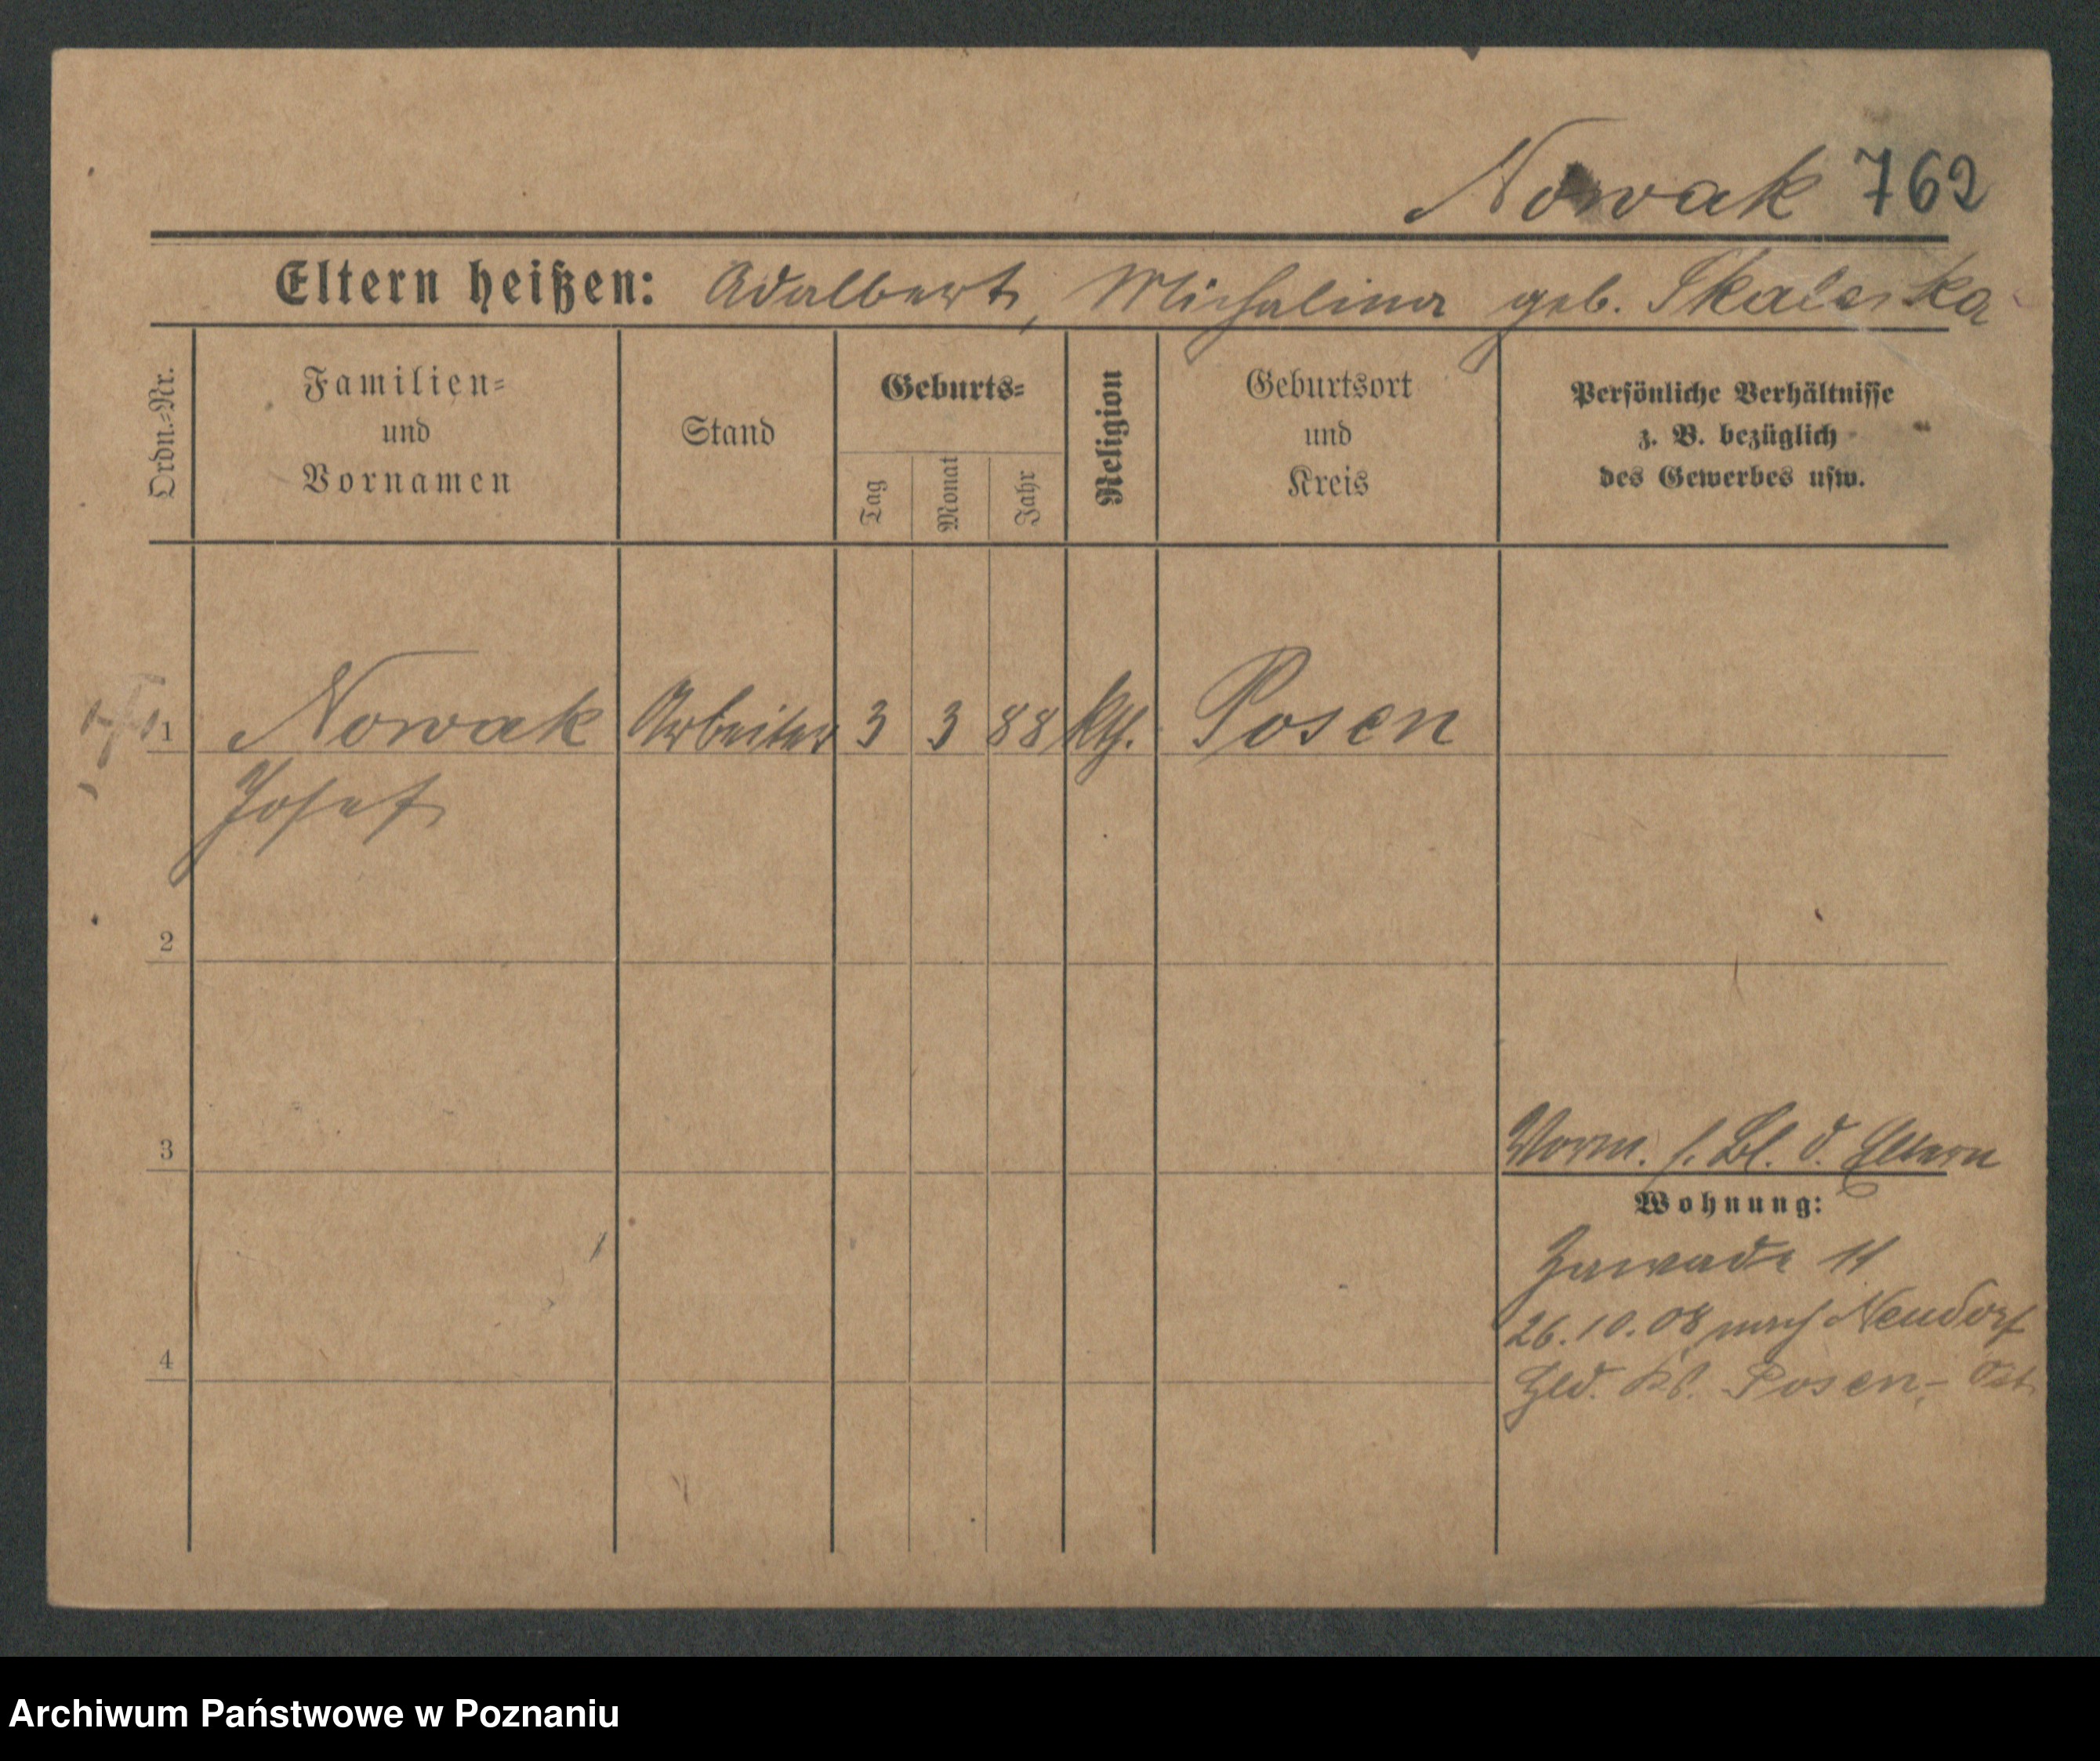 Nowak 762
Eltern heißen: Adalbert, Michalina geb. Skalerska
Ordn.=Nr.
Familien=
und
Vornamen
Stand
Geburts=
Tag
Monat
Jahr
Religion
Geburtsort
und
Kreis
Persönliche Verhältnisse
z. B. bezüglich
des Gewerbes usw.
1 Nowak Arbeiter 3 3 88 kth. Posen
Josef
2
3
Vorm. s. Bl. d. Eltern
Wohnung:
Zawade 11
26.10.08 nach Neudorf
4
Hld. Kr. Posen-Ost
Archiwum Państwowe w Poznaniu